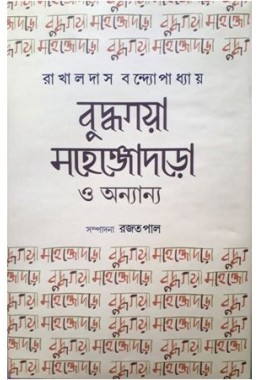 বুদ্ধগয়া মহেঞ্জোদড়ো বুদ্ধগয়া
মহেঞ্জোদড়ো বুদ্ধগয়া মহেঞ্জোদড়ো
রাখালদাস বন্দ্যোপাধ্যায়
বুদ্ধগয়া
মহেঞ্জোদড়ো
ও অন্যান্য
সম্পাদনা রজত পাল
বুদ্ধগয়া মহেঞ্জোদড়ো বুদ্ধগয়া
মহেঞ্জোদড়ো বুদ্ধগয়া মহেঞ্জোদড়ো
বুদ্ধগয়া মহেঞ্জোদড়ো বুদ্ধগয়া
মহেঞ্জোদড়ো বুদ্ধগয়া মহেঞ্জোদড়ো
বুদ্ধগয়া মহেঞ্জোদড়ো বুদ্ধগয়া
মহেঞ্জোদড়ো বুদ্ধগয়া মহেঞ্জোদড়ো